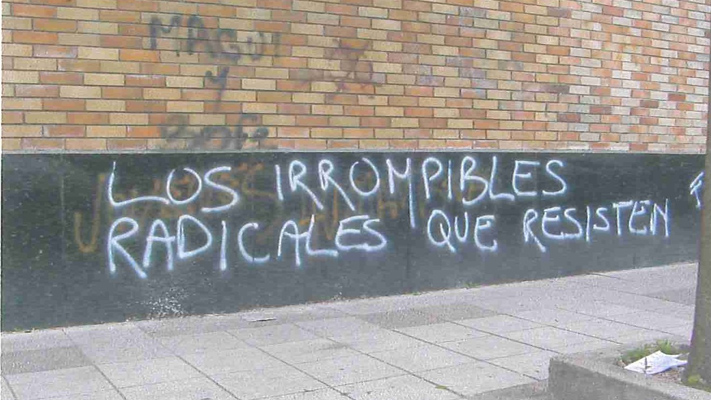 MAGUI
Y
LOS IRROMPIBLES
RADICALES QUE RESISTEN